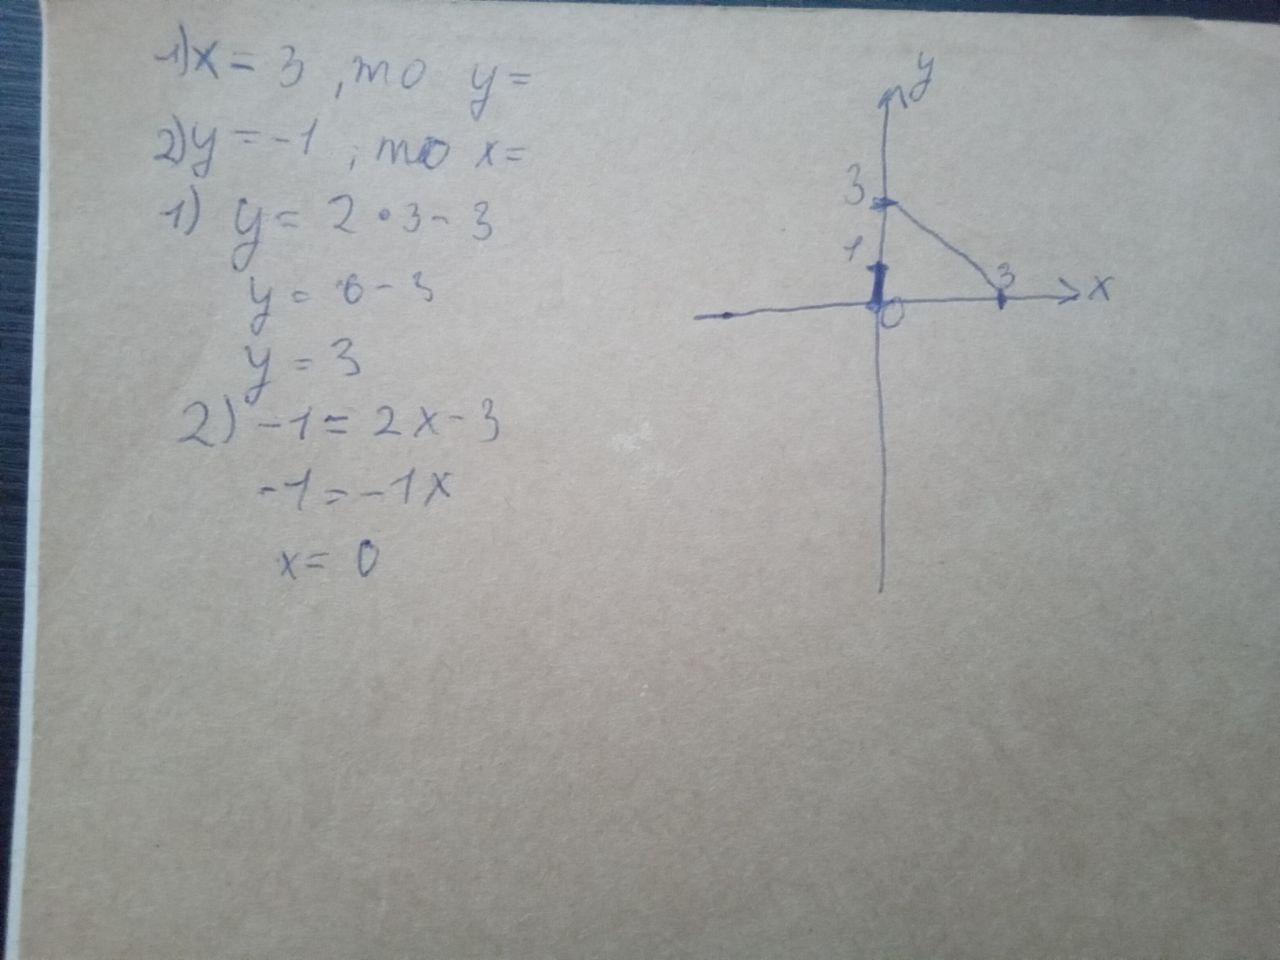 1) x = 3 , то y =
2) y = -1 , то x =
1) y = 2 • 3 - 3
y = 6 - 3
y = 3
2) -1 = 2x - 3
-1 = -1x
x = 0
y
3
1
3
x
0